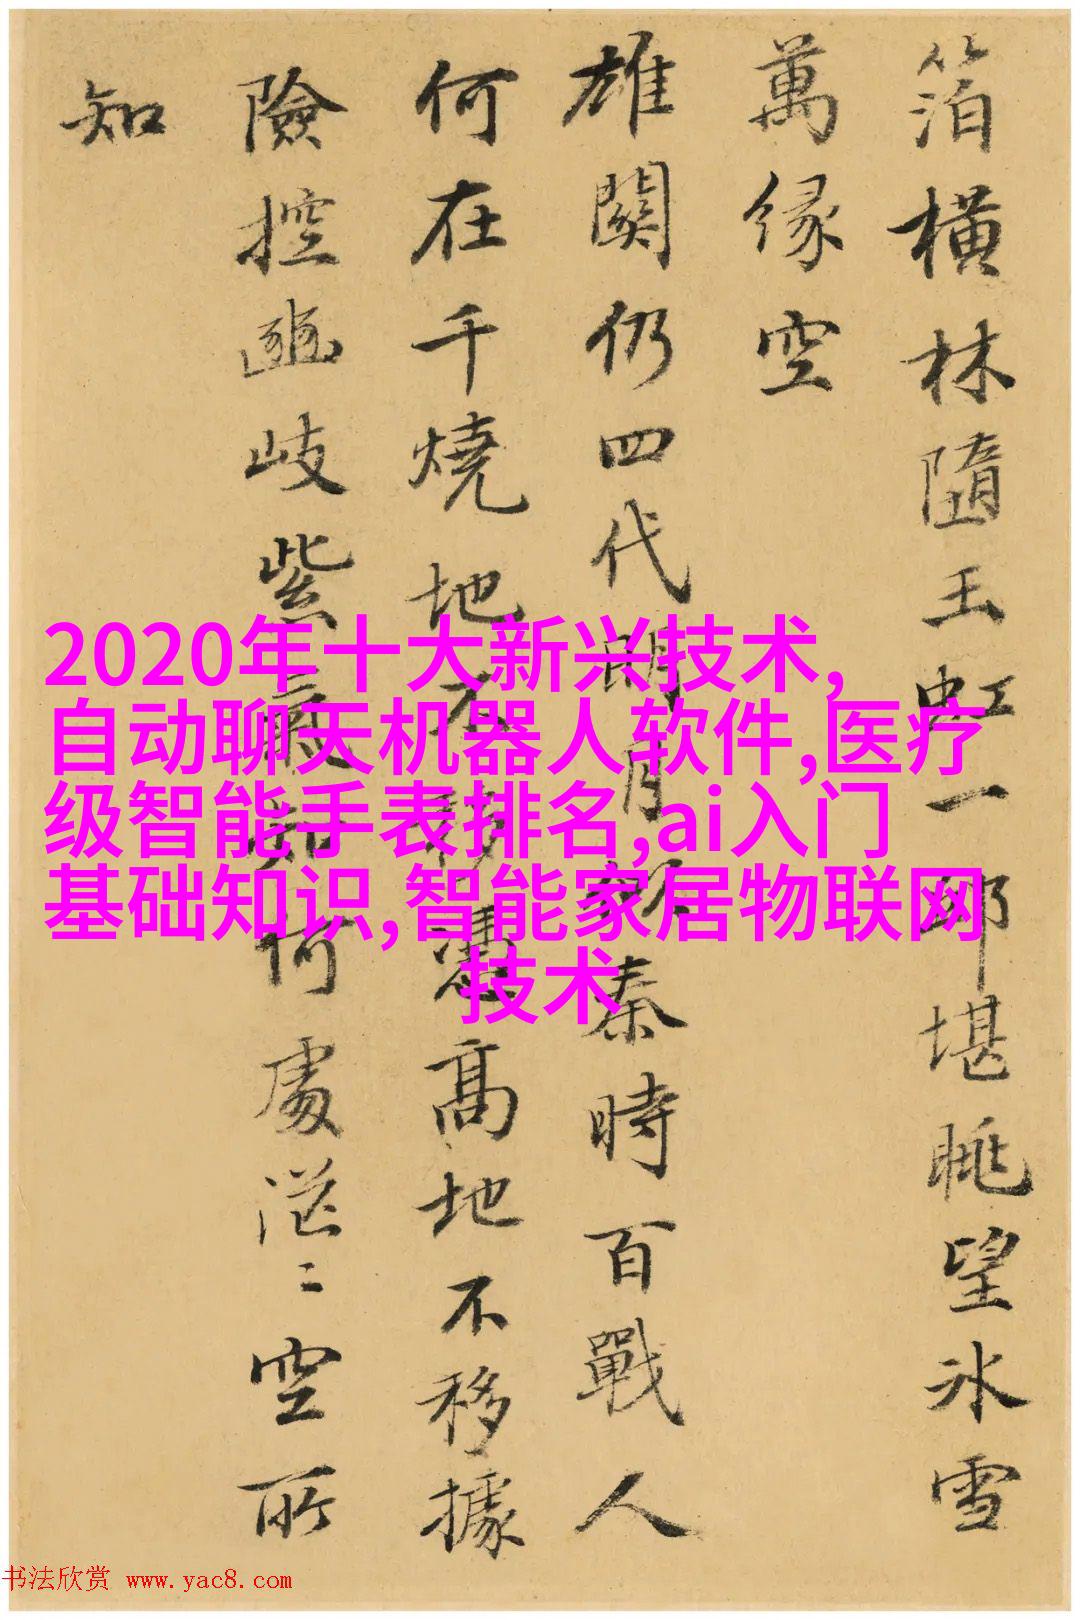 箔橫林隨玉虹一邱堪眺望冰雪
萬緣空
雄關仍四代明月秦時百戰人
何在千燒地不移憑高地不移據
險控豳岐紫氣知何處茫〻空所
知
2020年十大新兴技术,
自动聊天机器人软件,医疗
级智能手表排名,ai入门
基础知识,智能家居物联网
技术
书法欣赏 www.yac8.com